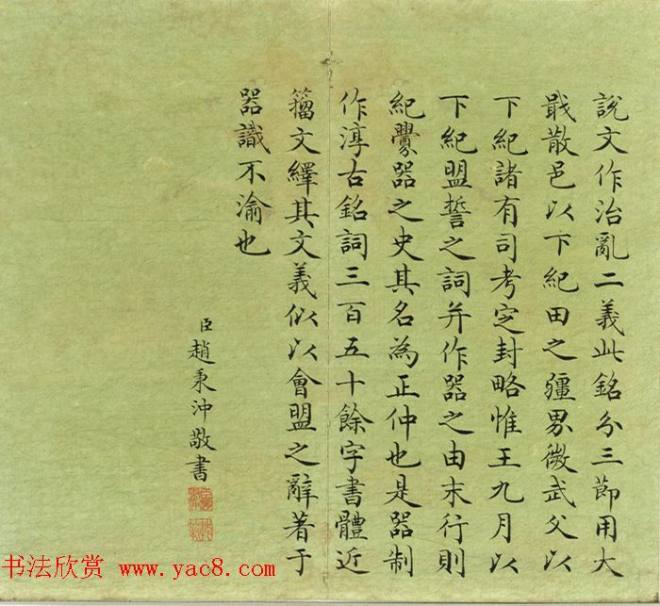 說文作治亂二義此銘分三節用大
戢散邑以下紀田之疆界微武父以
下紀諸有司考定封略惟王九月以
下紀盟誓之詞并作器之由末行則
紀釁器之史其名為正仲也是器制
作淳古銘詞三百五十餘字書體近
籀文繹其文義似以會盟之辭著于
器識不渝也
臣趙秉沖敬書
书法欣赏 www.yac8.com